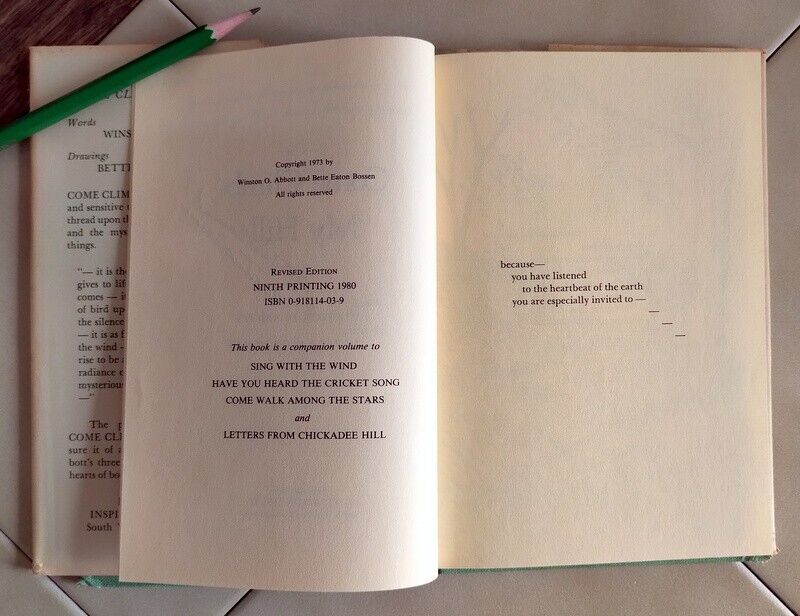 CL
Words
WINS
Drawings
BETT
COME CLIM
and sensitive
thread upon th
and the mys
things.
"— it is the
gives to life
comes — it
of bird up
the silence
— it is as f
the wind -
rise to be
radiance
mysterious
—"
The p
COME CLI
sure it of a
bott's three
hearts of bo
INSPI
South
Copyright 1973 by
Winston O. Abbott and Bette Eaton Bossen
All rights reserved
REVISED EDITION
NINTH PRINTING 1980
ISBN 0-918114-03-9
This book is a companion volume to
SING WITH THE WIND
HAVE YOU HEARD THE CRICKET SONG
COME WALK AMONG THE STARS
and
LETTERS FROM CHICKADEE HILL
because—
you have listened
to the heartbeat of the earth
you are especially invited to —
—
—
—